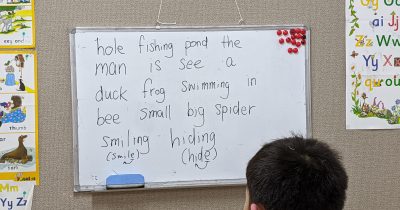 hole fishing pond the
man is see a
duck frog swimming in
bee small big spider
smiling hiding
(smile) (hide)
thumb
Mm
Yy Zz
ai Jj
Zz
Yy Xx
qu ou